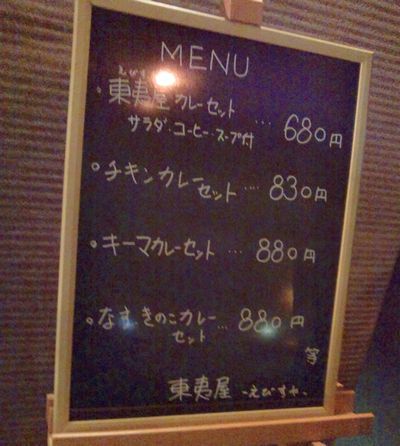 MENU
えびすや
東夷屋カレーセット
サラダ・コーヒー・スープ付 ‥‥ 680円
チキンカレーセット ‥‥ 830円
キーマカレーセット ‥‥ 880円
なす、きのこカレー
セット ‥‥ 880円
等
東夷屋 -えびすや-